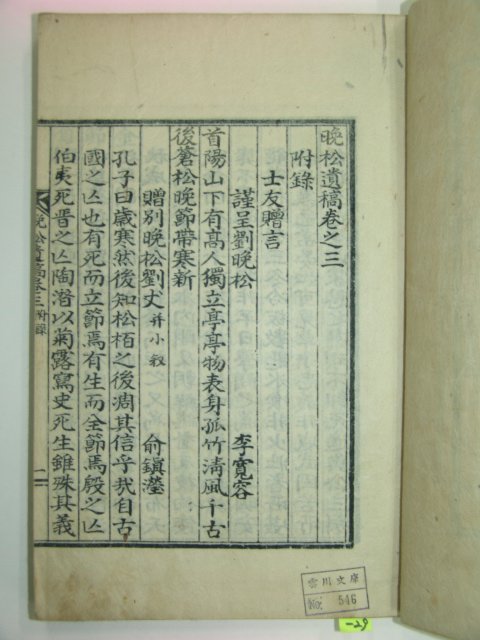 晩松遺稿卷之三
附錄
士友贈言
謹呈劉晩松 李寬容
首陽山下有高人獨立亭亭物表身孤竹清風千古
後蒼松晩節帶寒新
贈別晩松劉丈 幷小敍 俞鎭瀅
孔子曰歲寒然後知松栢之後凋其信乎哉自古
國之亾也有死而立節焉有生而全節焉殷之亾
伯夷死晋之亾陶潛以菊露寫史死生雖殊其義
晩松遺稿卷三 附錄 一
雲川文庫
No. 546
-29